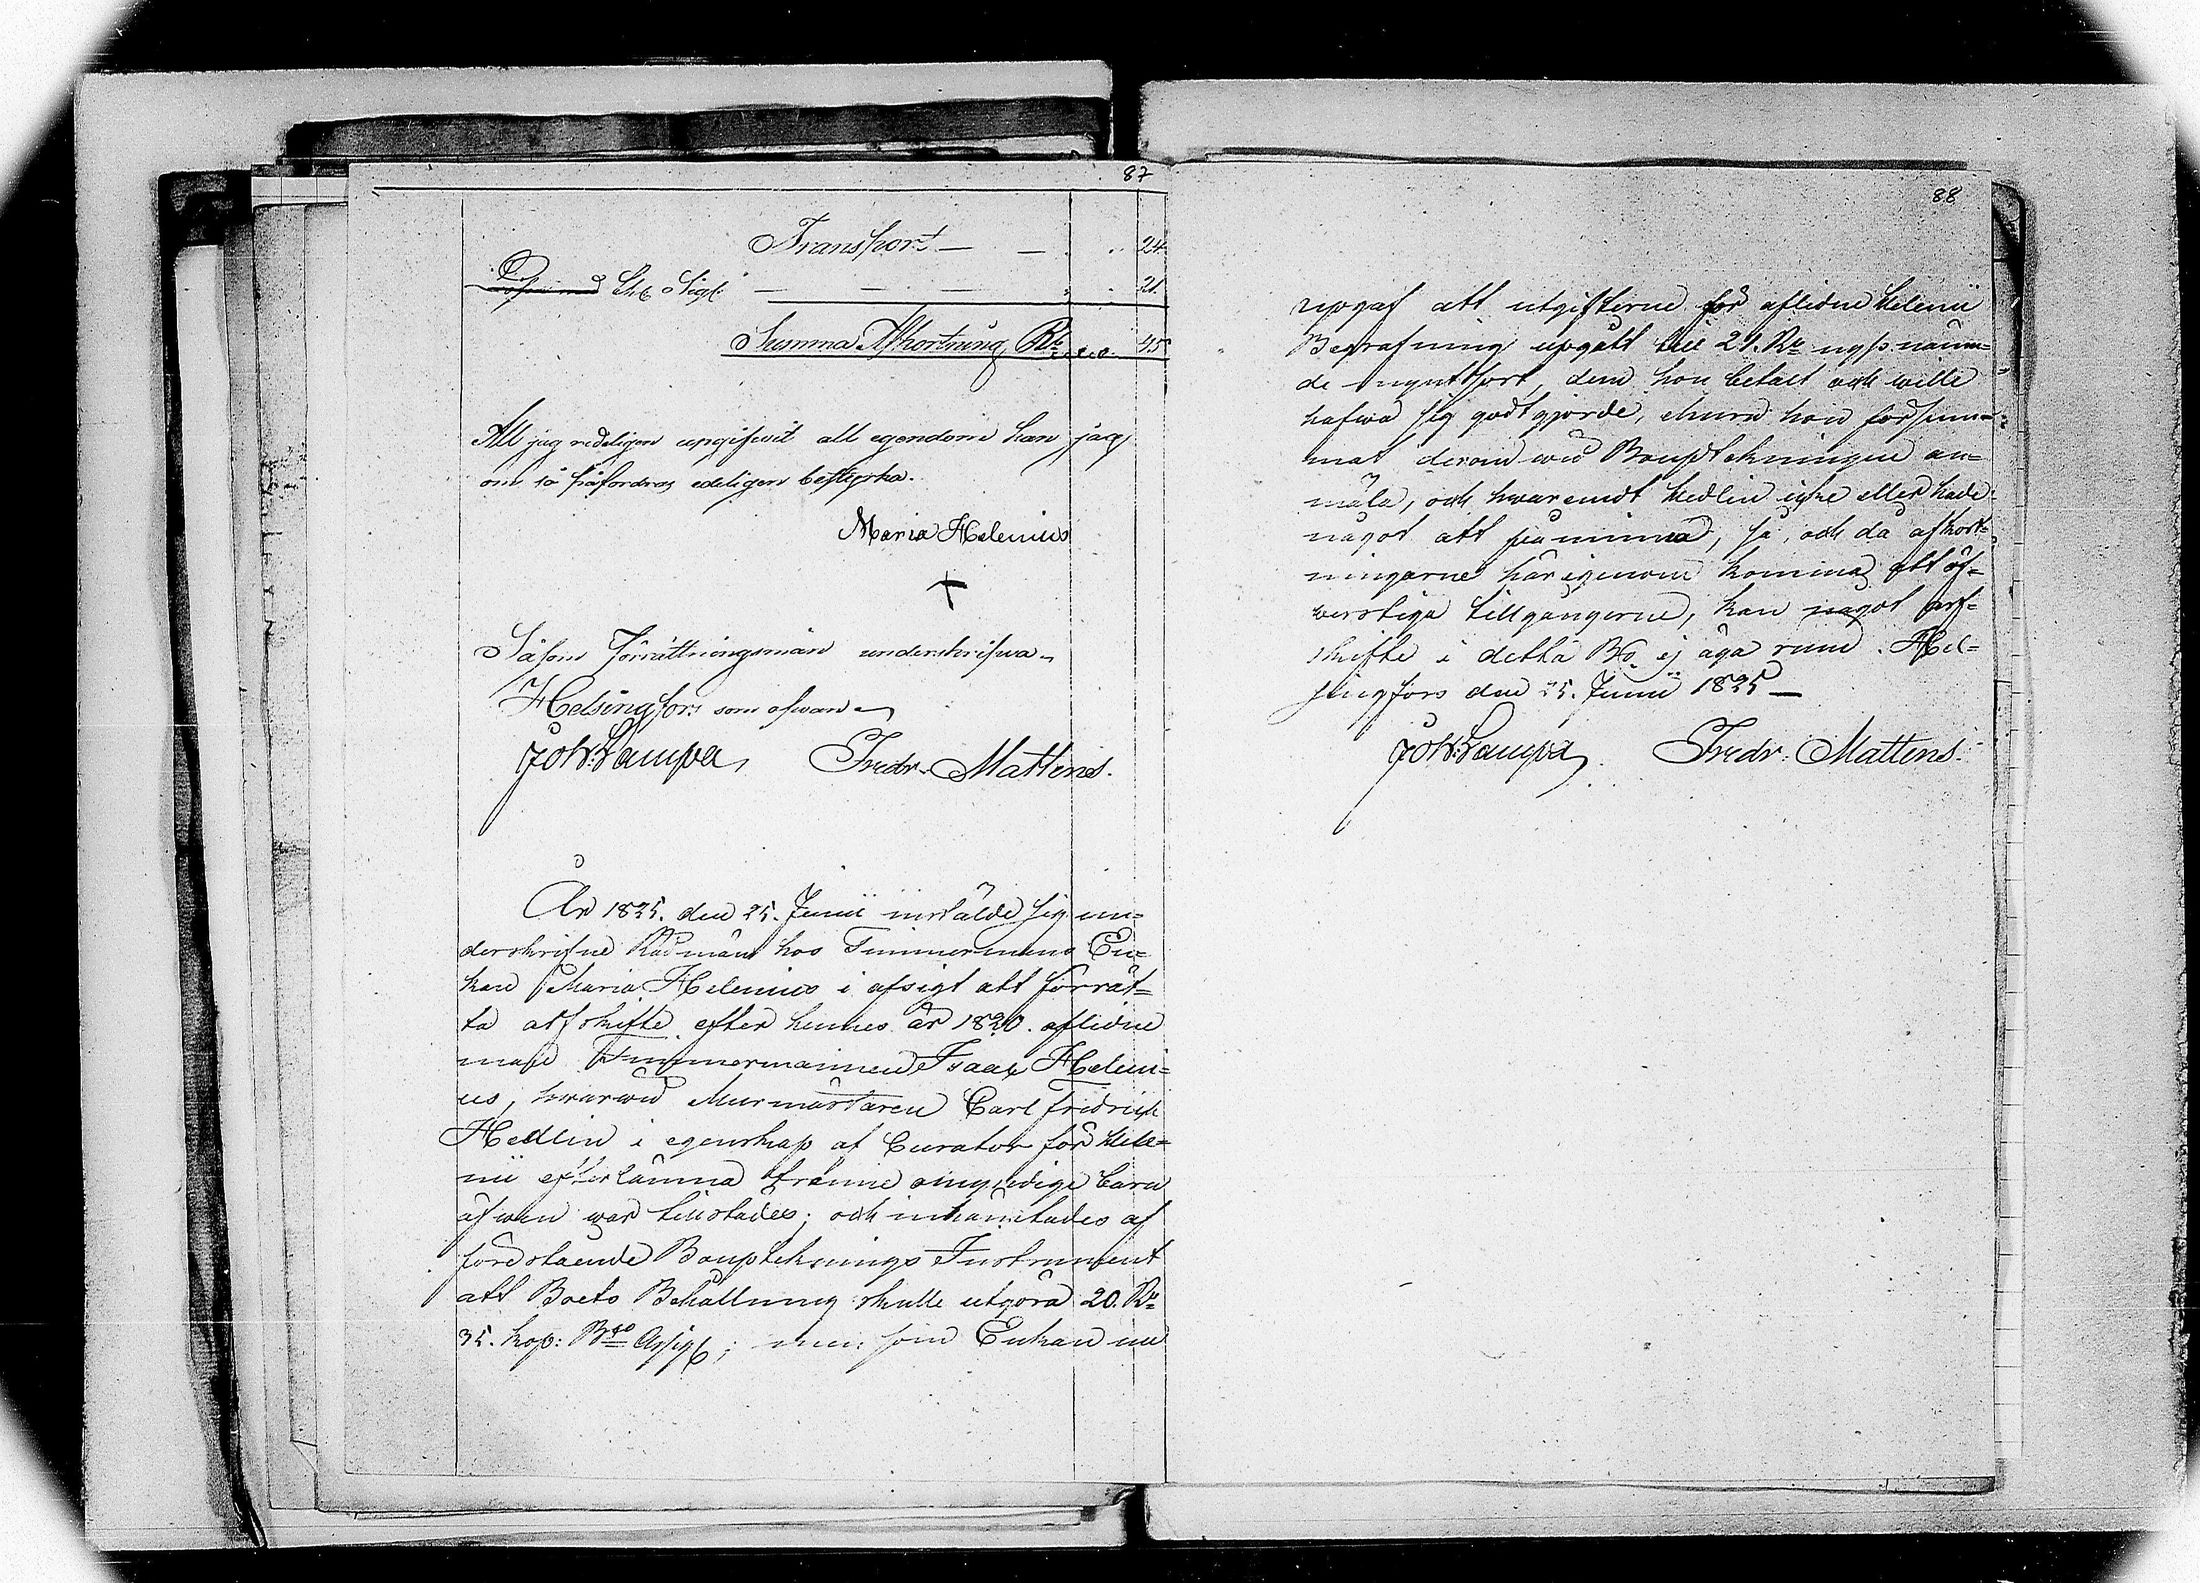 87
Transport — — . . 24.
Chl Sigl: — — — . . 21.
Summa Afkortning Rb . . . 45
Att jag redeligen upgifwit all egendom kan jag
om så påfordras edeligen bestyrka.
Maria Helenius
+
Såsom Förrättningsmän underskrifwa
Helsingfors som ofwan
Joh: Lampa, Fredr. Mattens.
År 1825. den 25. Junii instälde sig un=
derskrifne Rådmän hos Timmermans En=
kan Maria Helenius i afsigt att förrät=
ta arfskifte efter hennes år 1820. aflidne
man Timmermannen Isaac Heleni=
us, hwarwid Murmästaren Carl Fredrich
Hedlin i egenskap af Curator för Hele=
nii efterlämna trenne omyndige barn
äfwen war tillstädes; och inhämtades af
förestående Boupteknings Instrument
att Boets Behållning skulle utgöra 20. Rb
35. kop: Bco Assig; men som Enkan nu
88
upgaf att utgifterne för aflidne Helenii
Begrafning upgått till 21. Rb nyss nämn=
de myntsort, dem hon betalt och wille
hafwa sig godtgjorde, ehuru hon försum=
mat derom wid Bouptekningen an=
mäla, och hwaremot Hedlin icke eller hade
något att påminna, så, och då afkort=
ningarne härigenom komma att öf=
werstiga tillgångarne, kan något arf=
skifte i detta Bo ej äga rum. Hel=
singfors den 25. Junii 1825 —
Joh: Lampa, Fredr. Mattens.